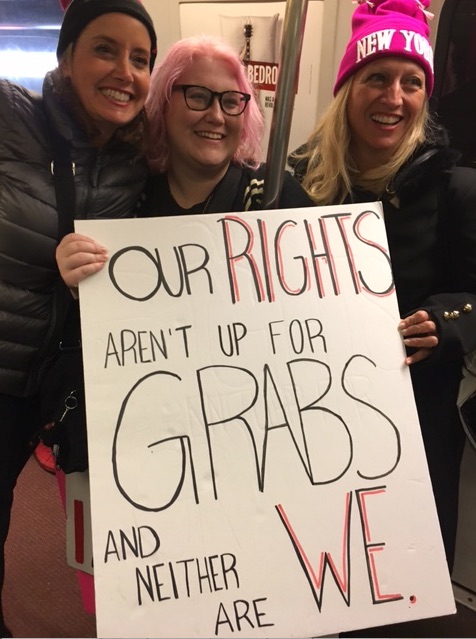 BEDRO
NEW YORK
OUR RIGHTS
AREN'T UP FOR
GRABS
AND
NEITHER
ARE
WE.